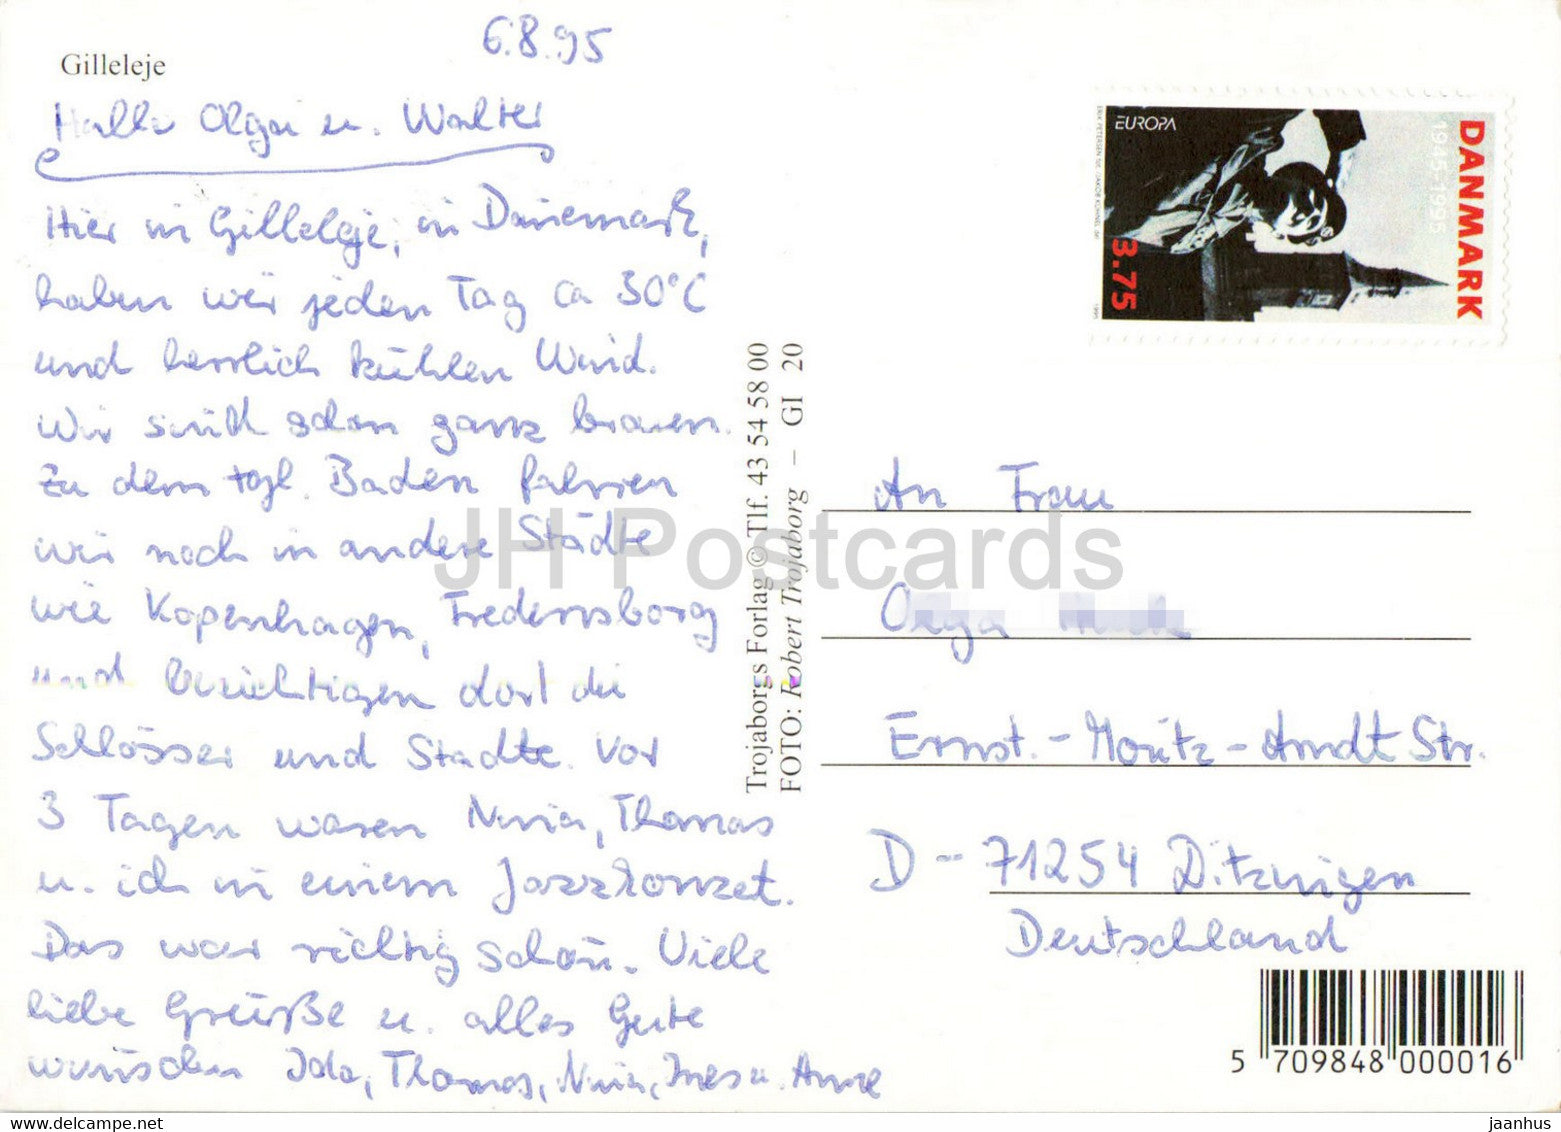 6.8.95
Gilleleje
Hallo Olga u. Walter
Hier in Gilleleje, in Dänemark,
haben wir jeden Tag ca 30°C
und herrlich kühlen Wind.
Wir sind schon ganz braun.
Zu dem tgl. Baden fahren
wir noch in andere Städte
wie Kopenhagen, Fredensborg
und besichtigen dort die
Schlösser und Städte. Vor
3 Tagen waren Nina, Thomas
u. ich in einem Jazzkonzet.
Das war richtig schön. Viele
liebe Grüße u. alles Gute
wünschen Ida, Thomas, Nina, Ines u. Anne
Trojaborgs Forlag © Tlf. 43 54 58 00
FOTO: Robert Trojaborg – GI 20
EUROPA
DANMARK
1945-1995
3.75
1995
An Frau
Olga
Ernst.-Moritz-Arndt Str.
D-71254 Ditzingen
Deutschland
5 709848 000016
JH Postcards
www.delcampe.net
jaanhus